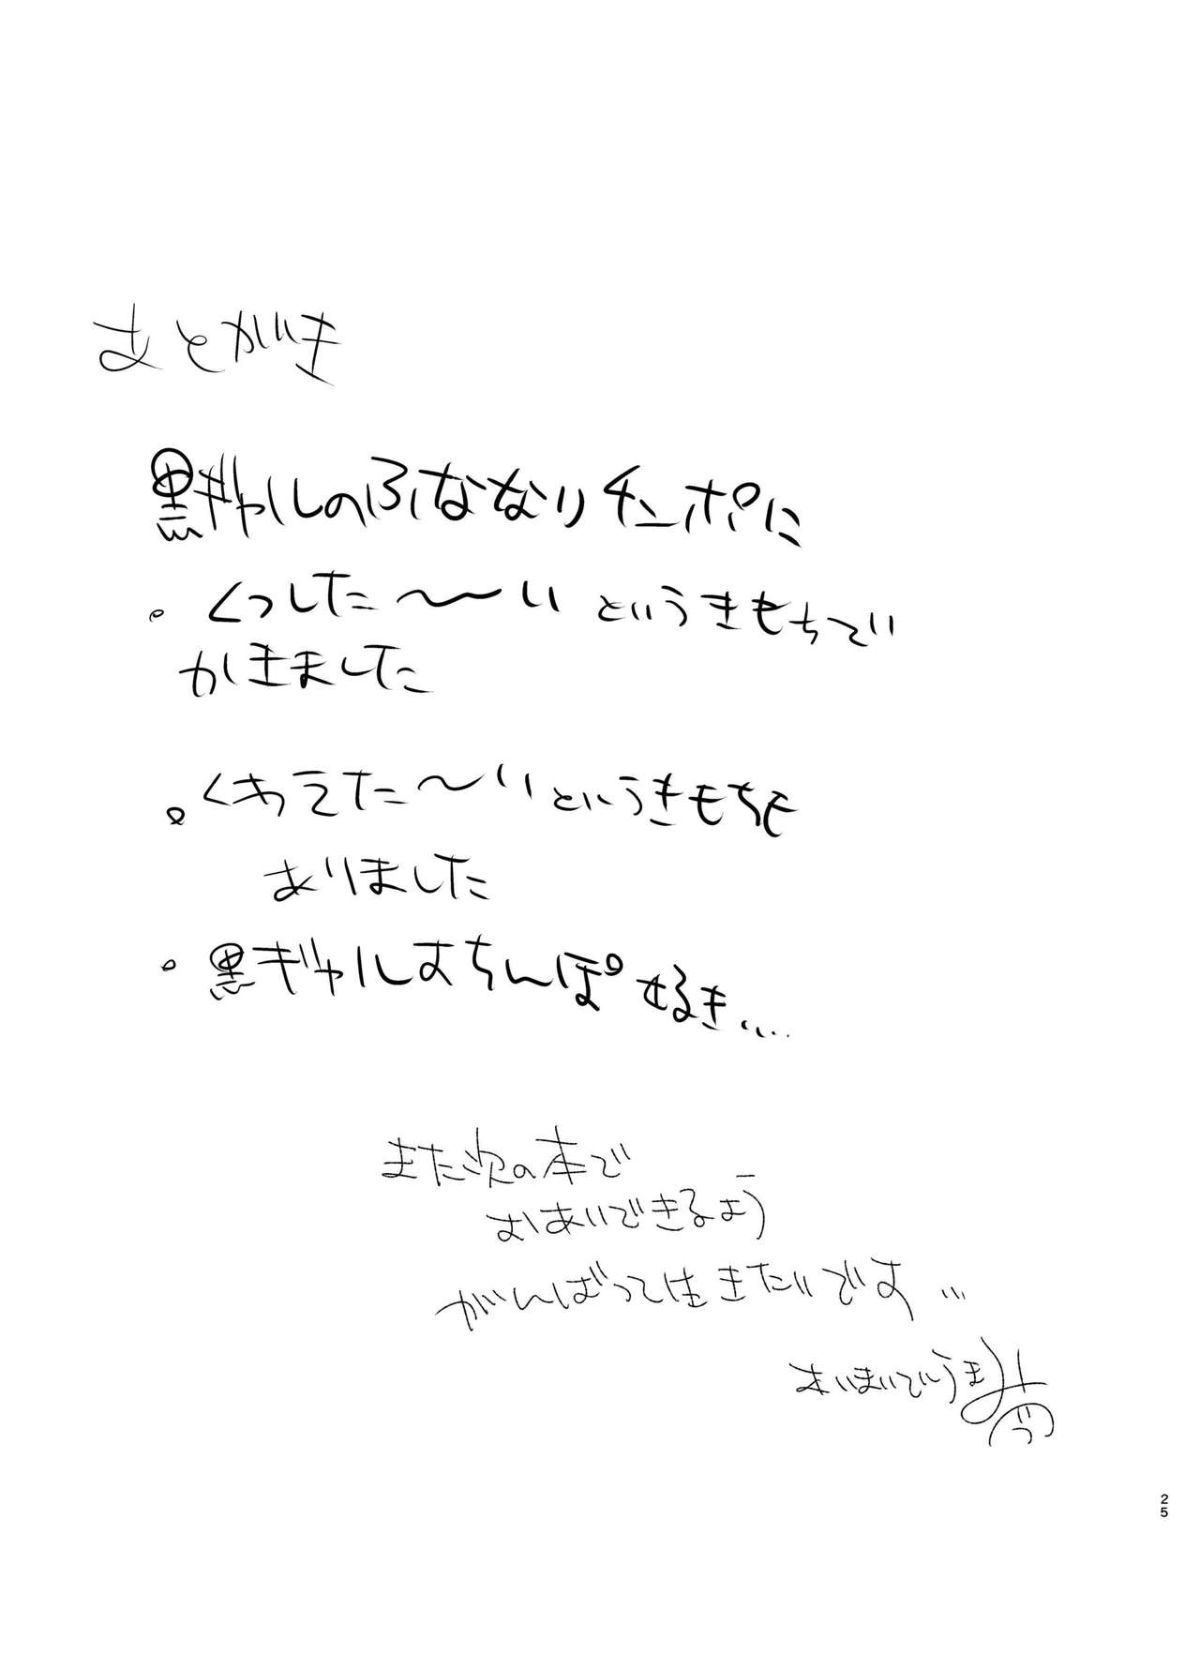 あとがき
黒ギャルのふななりチンポに
・くっしたーいというきもちで
かきました
・くわえたーいというきもちも
ありました
・黒ギャルおちんぽ好き…
また次の本で
おあいできるよう
がんばって生きたいです…
25